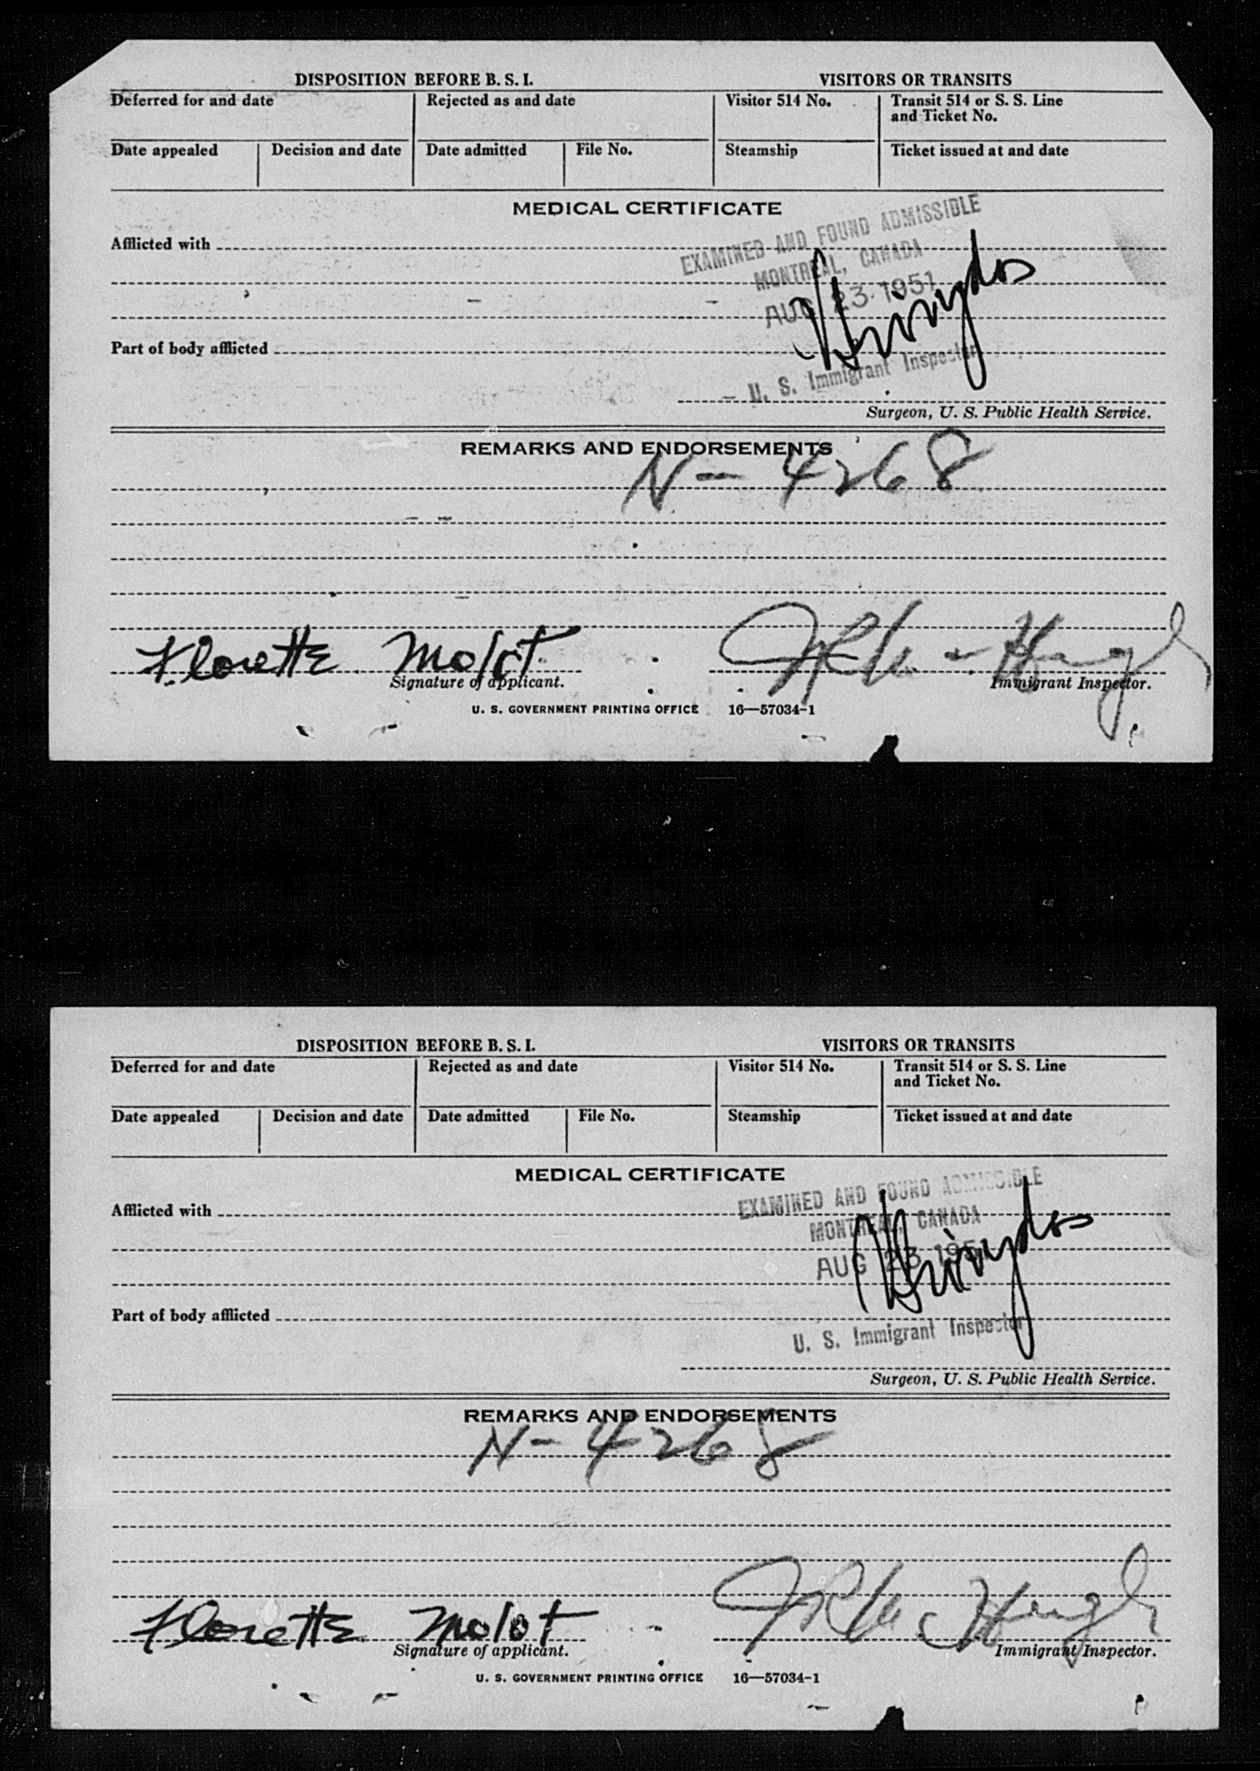 DISPOSITION BEFORE B. S. I. VISITORS OR TRANSITS
Deferred for and date Rejected as and date Visitor 514 No. Transit 514 or S. S. Line
and Ticket No.
Date appealed Decision and date Date admitted File No. Steamship Ticket issued at and date
MEDICAL CERTIFICATE
EXAMINED AND FOUND ADMISSIBLE
Afflicted with
MONTREAL, CANADA
AUG 23 1951
Part of body afflicted
U. S. Immigrant Inspector
Surgeon, U. S. Public Health Service.
REMARKS AND ENDORSEMENTS
N-4268
Florette Molot
Signature of applicant. Immigrant Inspector.
U. S. GOVERNMENT PRINTING OFFICE 16—57034-1
DISPOSITION BEFORE B. S. I. VISITORS OR TRANSITS
Deferred for and date Rejected as and date Visitor 514 No. Transit 514 or S. S. Line
and Ticket No.
Date appealed Decision and date Date admitted File No. Steamship Ticket issued at and date
MEDICAL CERTIFICATE
EXAMINED AND FOUND ADMISSIBLE
Afflicted with
MONTREAL, CANADA
AUG 23 1951
Part of body afflicted
U. S. Immigrant Inspector
Surgeon, U. S. Public Health Service.
REMARKS AND ENDORSEMENTS
N-4268
Florette Molot
Signature of applicant. Immigrant Inspector.
U. S. GOVERNMENT PRINTING OFFICE 16—57034-1